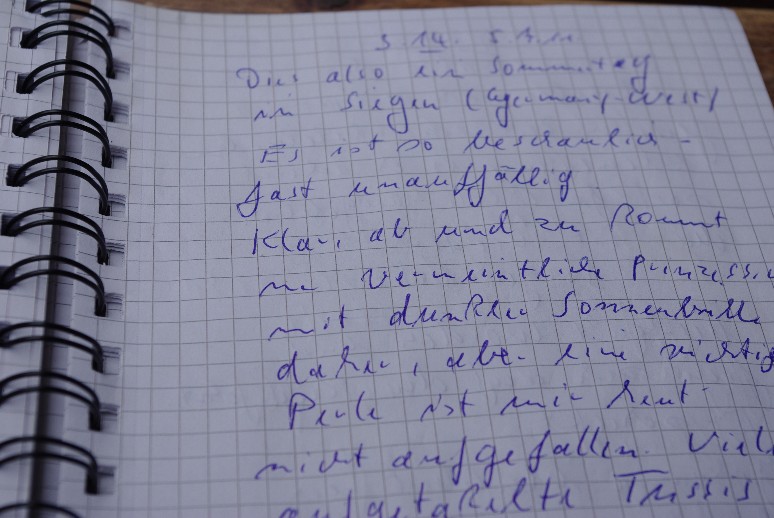 Dies also ein Sommertag
in Siegen (Germany-West)
Es ist so beschaulich -
fast unauffällig
Klar, ab und zu kommt
ne vermeintliche Prinzessin
mit dunkler Sonnenbrille
daher, aber eine richtig
Perle ist mir heut
nicht aufgefallen. Viel
aufgetakelte Tussis